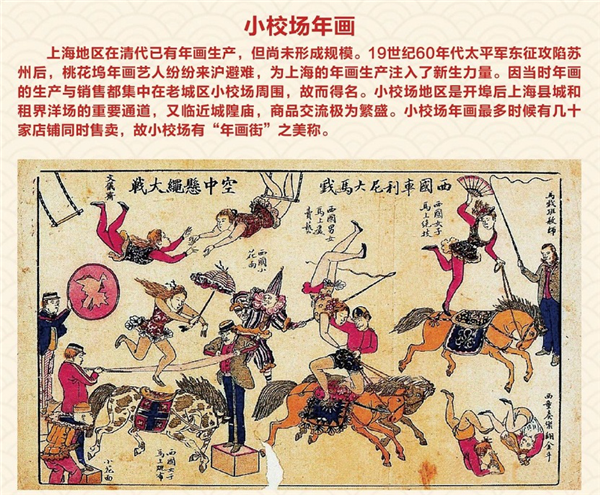 小校场年画
上海地区在清代已有年画生产，但尚未形成规模。19世纪60年代太平军东征攻陷苏
州后，桃花坞年画艺人纷纷来沪避难，为上海的年画生产注入了新生力量。因当时年画
的生产与销售都集中在老城区小校场周围，故而得名。小校场地区是开埠后上海县城和
租界洋场的重要通道，又临近城隍庙，商品交流极为繁盛。小校场年画最多时候有几十
家店铺同时售卖，故小校场有“年画街”之美称。
西國車利尼大馬戲
空中懸繩大戰
文儀齋
馬戲班教師
西國女子
馬上絕技
西國男女
馬上
西國小
花面
西童奏樂翻金斗
西國女子
馬上
小花面